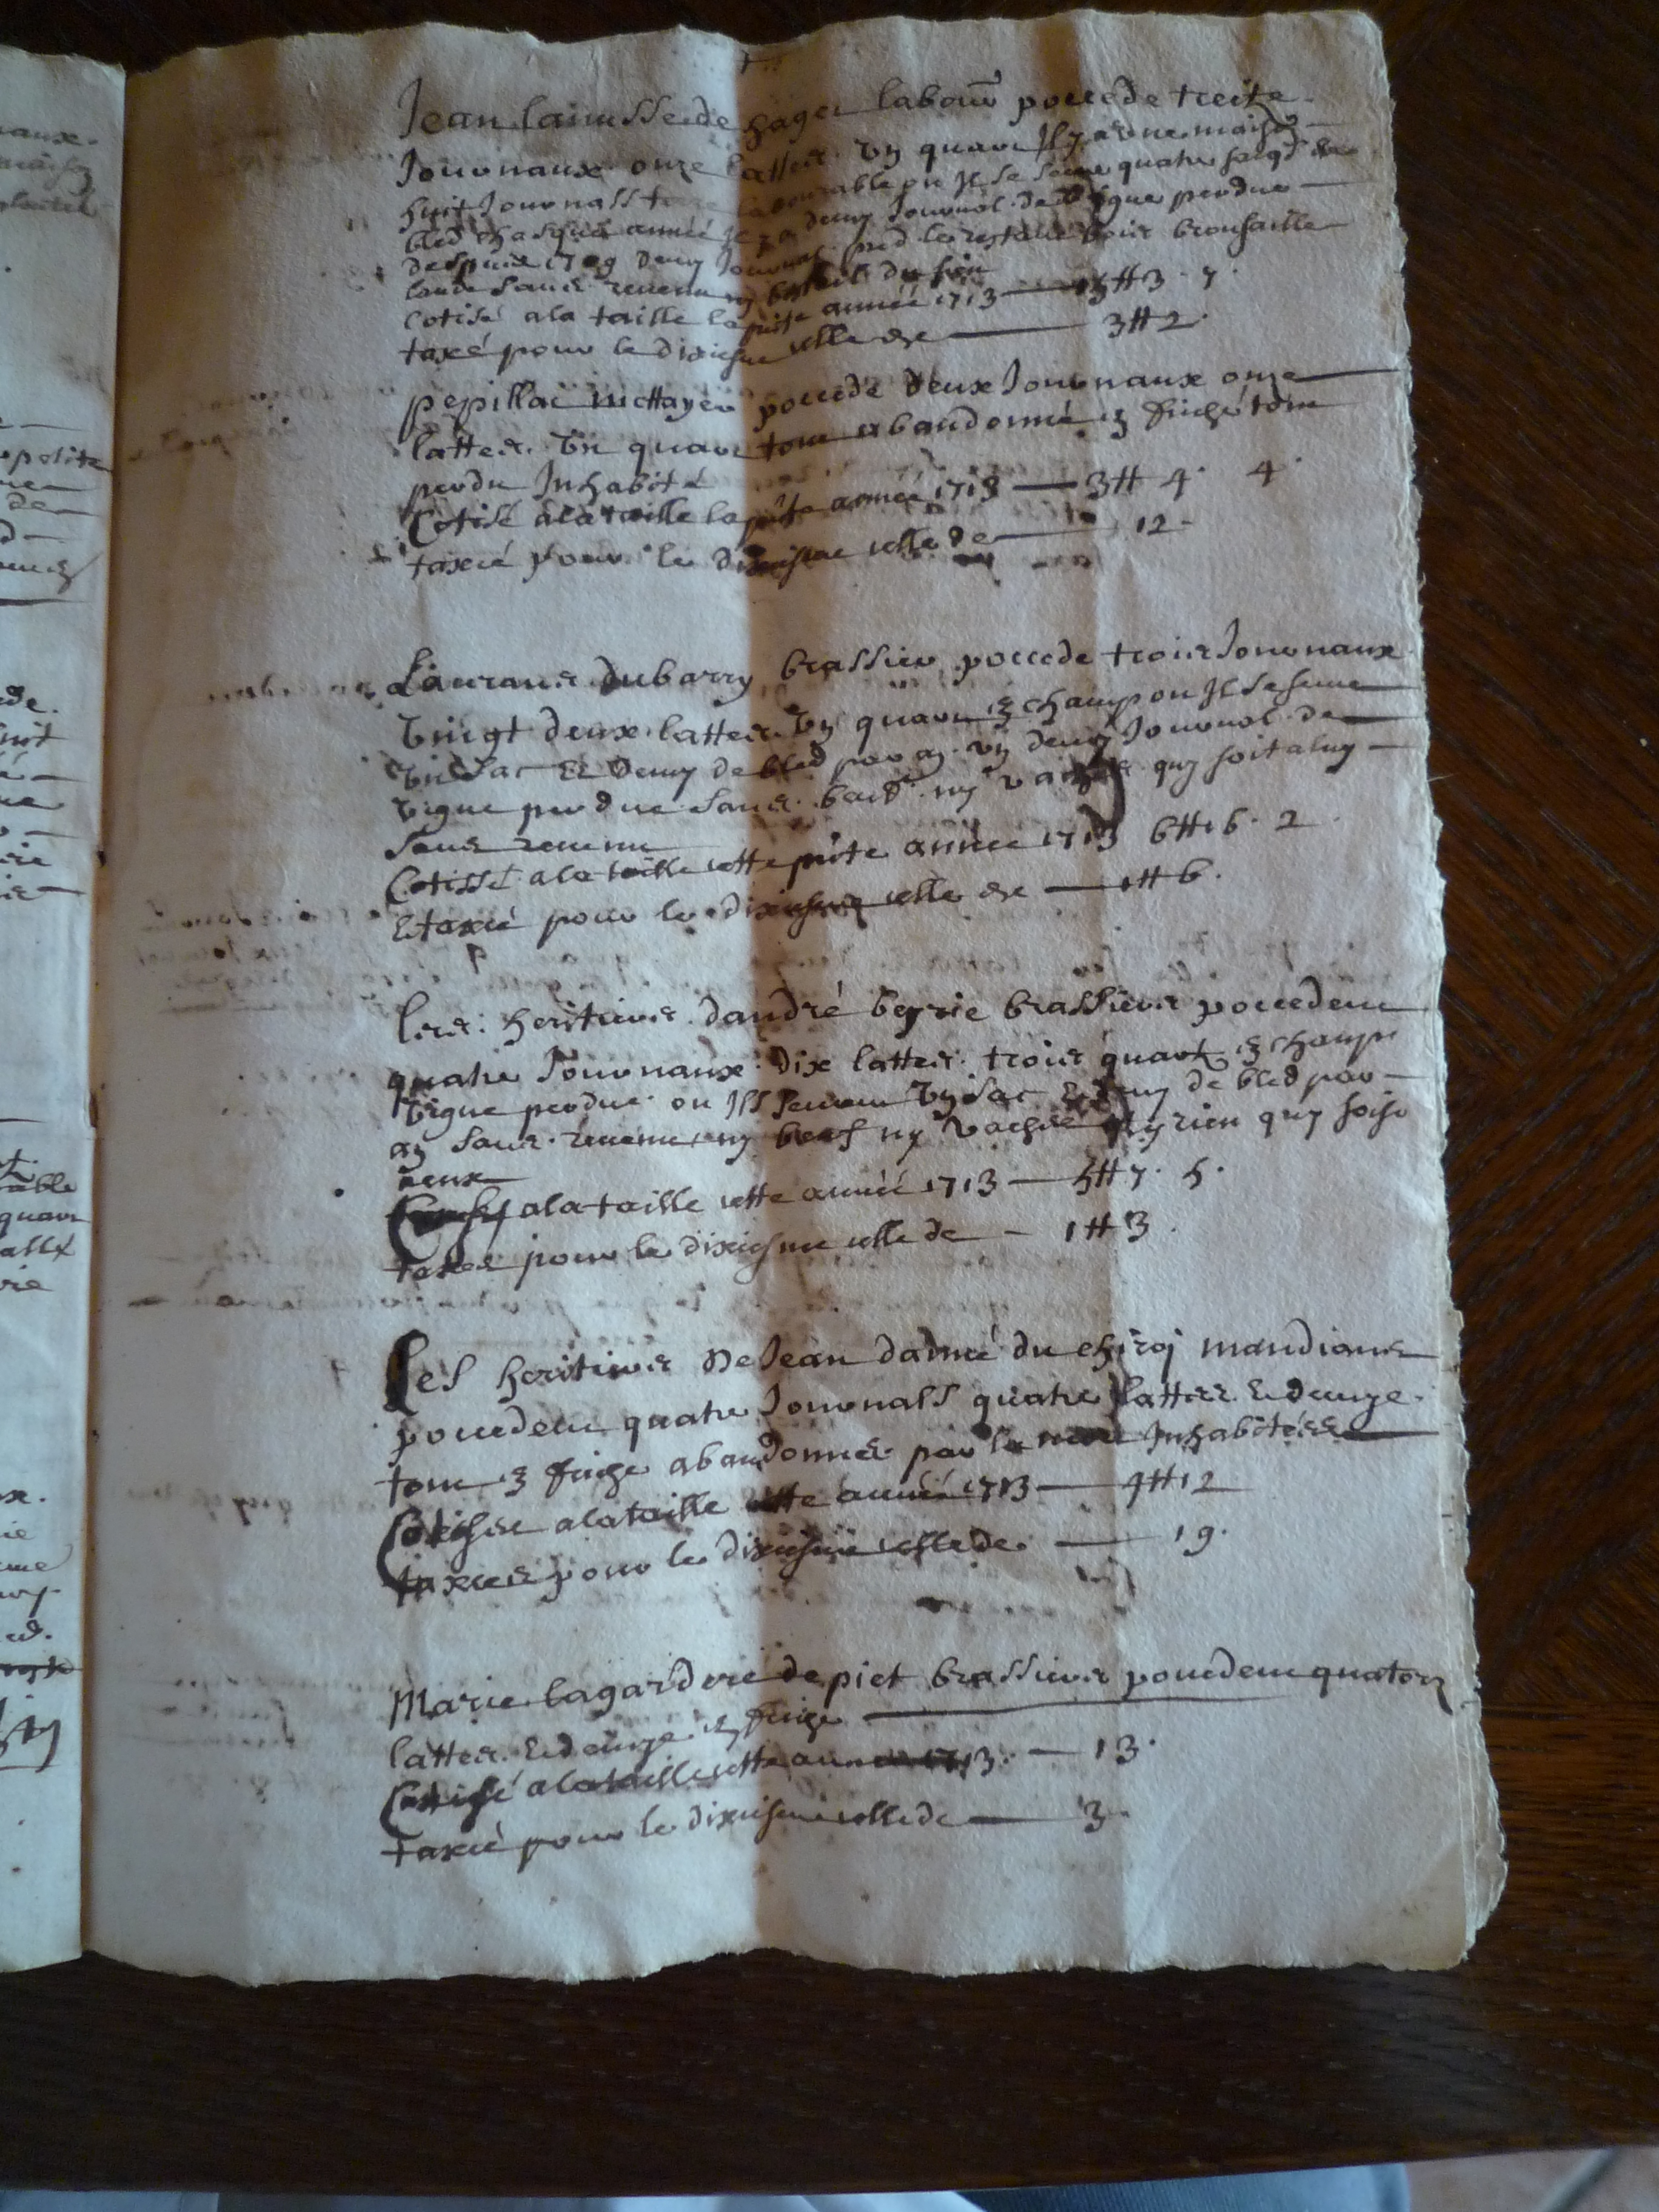 Jean lanusse de hager labour pocede treitze
Journaux onze lattes un quart Il y a une maison
huit Journals terre labourable ou Il se seme quatre sacqs de
bled chasque année Il y a demy Journal de vigne perdue
despuis 1709 demy Journal pred le restant bois brousaille
lande sans revenu ny bestail du sien
Cotisé a la taille la pnte année 1713 — 15 ₶ 3 · 7 ·
taxé pour le dixiesme celle de — 3 ₶ 2 ·
pepillac mettayer pocede deux Journaux onze
lattes un quart tout abandonné en friche tout
perdu Inhabité
Cotisé a la taille la pnte année 1713 — 3 ₶ 4 · 4 ·
taxcé pour le dixiesme celle de — 12 ·
Laurans dubarry brassier pocede trois Journaux
vingt deux lattes un quart en champ ou Il se seme
un sac et demy de bled par an un demy Journal de
vigne perdue sans beuf ny vache quy soit a luy
sans revenu
Cotissé a la taille cette pnte année 1713 6 ₶ 16 · 2
et taxcé pour le dixiesme celle de — 1 ₶ 6 ·
Les heritiers dandré beyrie brassiers pocedent
quatre Journaux dix lattes trois quart en champ
vigne perdue ou Ils sement un sac et demy de bled par
an sans revenu ny beuf ny vache ny rien quy soist
aeux
a la taille cette année 1713 — 5 ₶ 7 · 5 ·
taxes pour le dixiesme celle de — 1 ₶ 3 ·
Les heritiers de Jean dadmé du chiroj mandians
pocedent quatre Journals quatre lattes et demye
tout en friche abandonnés par la Inhabitées
Cotisés a la taille cette année 1713 — 4 ₶ 12
taxces pour le dixiesme celle de — 19 ·
Marie lagardere de piet brassiers pocedent quatorz
lattes et demye en friche
Cottisé a la taille cette année 1713 — 13 ·
taxcé pour le dixiesme celle de — 3